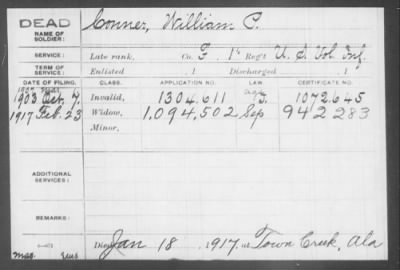 DEAD
NAME OF SOLDIER:
Conner, William P.
SERVICE:
Late rank, Co. F. 1st Reg't U. S. Vol. Inf.
TERM OF SERVICE:
Enlisted , 1 Discharged , 1
DATE OF FILING. CLASS. APPLICATION NO. LAW. CERTIFICATE NO.
1903 Oct. 7. Invalid, 1304.611 1072.645
1917 Feb. 23 Widow, 1.094.502 Sep 942 283
Minor,
ADDITIONAL SERVICES:
REMARKS:
Died Jan 18 , 1917, at Town Creek, Ala